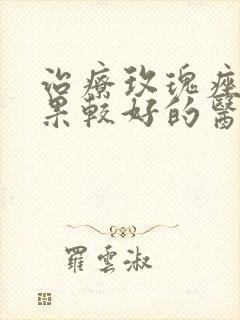 治療玫瑰痤
果較好的醫
羅雲淑